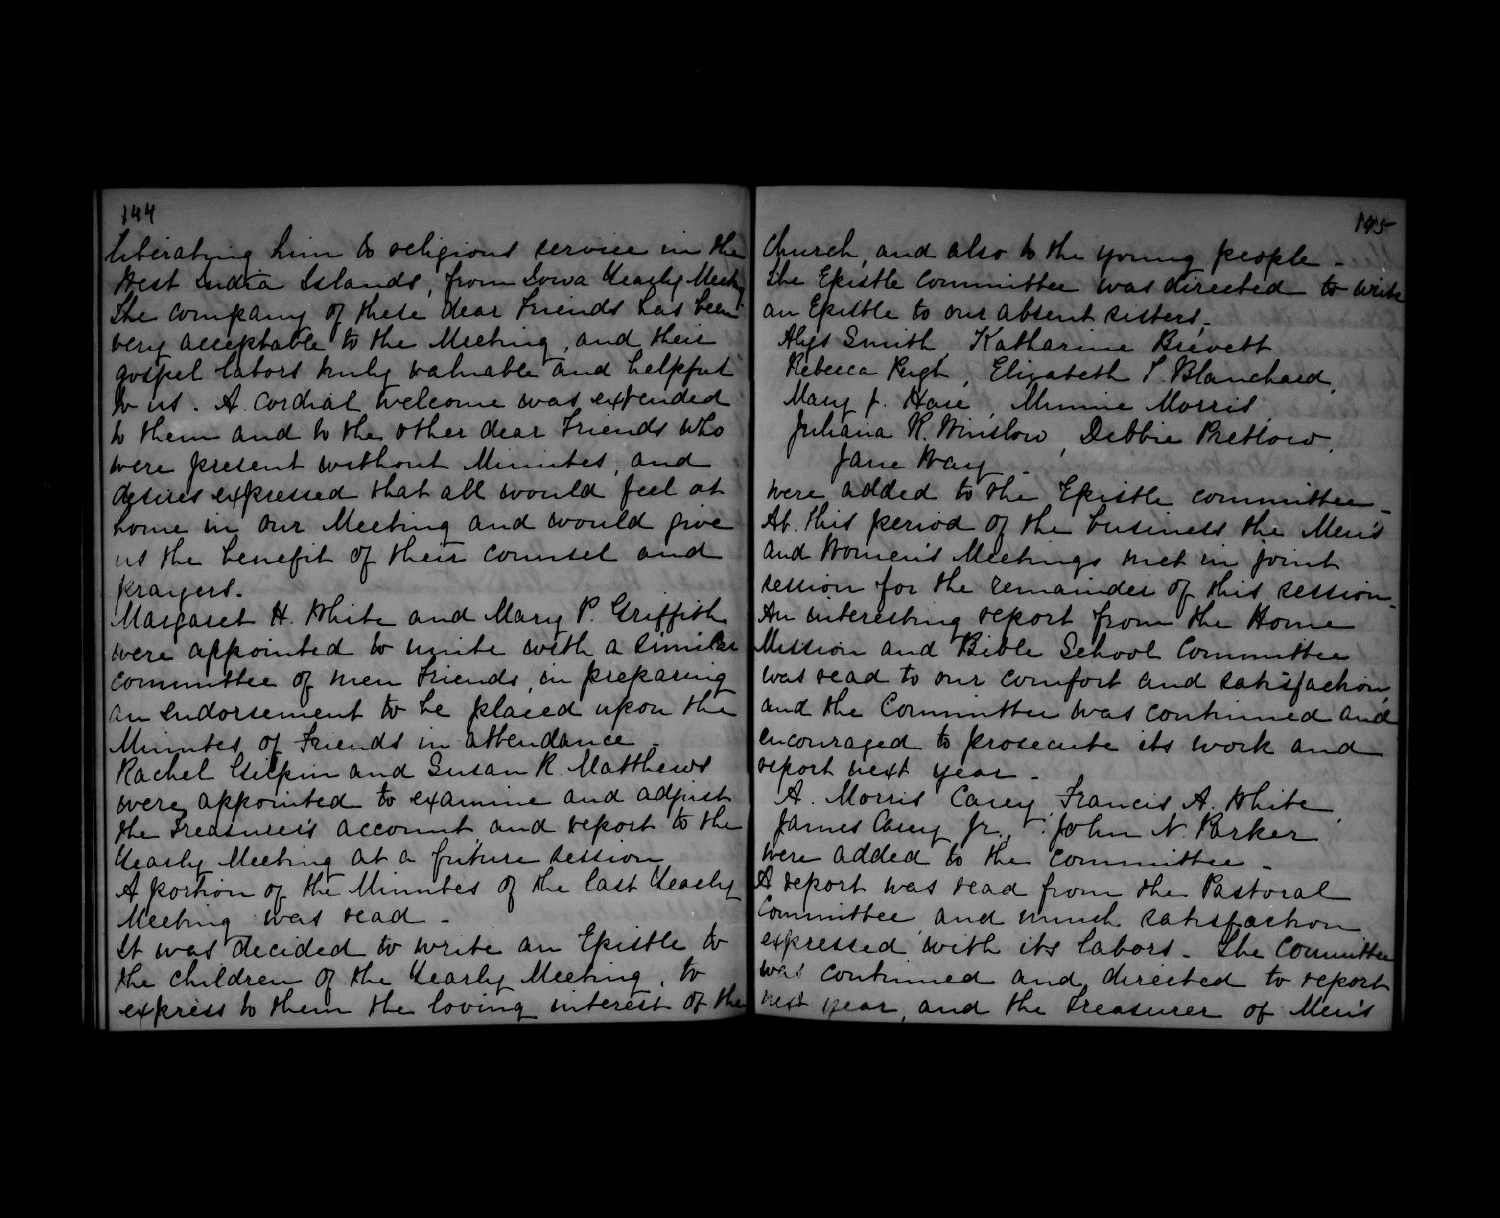 144
liberating him to religious service in the
West India Islands, from Iowa Yearly Meetg
The company of these dear Friends has been
very acceptable to the Meeting, and their
gospel labors truly valuable and helpful
to us. A cordial welcome was extended
to them and to the other dear Friends who
were present without Minutes, and
desires expressed that all would feel at
home in our Meeting and would give
us the benefit of their counsel and
prayers.
Margaret H. White and Mary P. Griffith
were appointed to unite with a similar
committee of men Friends, in preparing
an endorsement to be placed upon the
Minutes of Friends in attendance.
Rachel Gilpin and Susan R. Matthews
were appointed to examine and adjust
the Treasurer's account and report to the
Yearly Meeting at a future session
A portion of the Minutes of the last Yearly
Meeting was read -
It was decided to write an Epistle to
the children of the Yearly Meeting, to
express to them the loving interest of the
145
Church, and also to the young people -
The Epistle Committee was directed to write
an Epistle to our absent sisters,
Alys Smith, Katharine Brevett
Rebecca Pugh, Elizabeth S. Blanchard,
Mary J. Hare, Minnie Morris,
Juliana R. Winslow, Debbie Pretlow,
Jane Way -
were added to the Epistle committee -
At this period of the business the Men's
and Women's Meetings met in joint
session for the remainder of this session -
An interesting report from the Home
Mission and Bible School Committee
was read to our comfort and satisfaction,
and the Committee was continued and
encouraged to prosecute its work and
report next year -
A. Morris Carey, Francis A. White,
James Carey Jr., John N. Parker
were added to the committee -
A report was read from the Pastoral
Committee and much satisfaction
expressed with its labors - The Committee
was continued and directed to report
next year, and the Treasurer of Men's